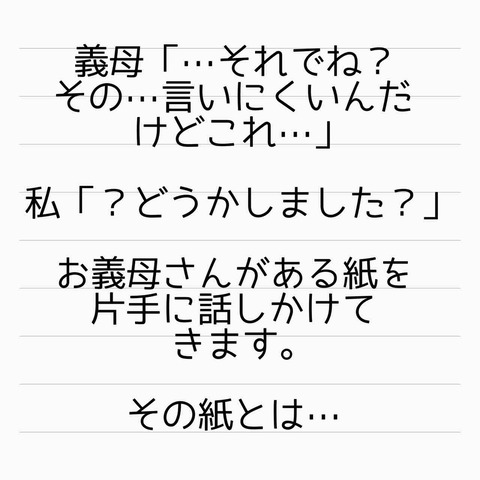 義母「…それでね？
その…言いにくいんだ
けどこれ…」
私「？どうかしました？」
お義母さんがある紙を
片手に話しかけて
きます。
その紙とは…